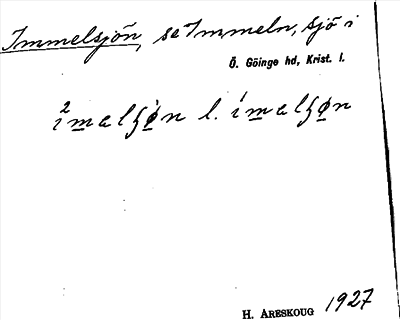 Immelsjön, se Immeln, sjö i
Ö. Göinge hd, Krist. l.
i²malʃøn l. ímalʃøn
H. ARESKOUG 1927